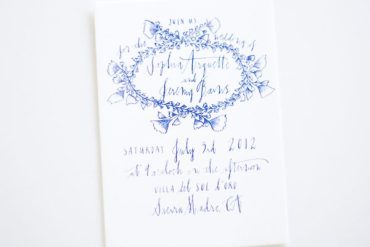 JOIN US
for the wedding of
Sophia Arquette
and
Jeremy Barns
SATURDAY July 3rd 2012
at o'clock in the afternoon
VILLA del SOL d'ORO
Sierra Madre, CA